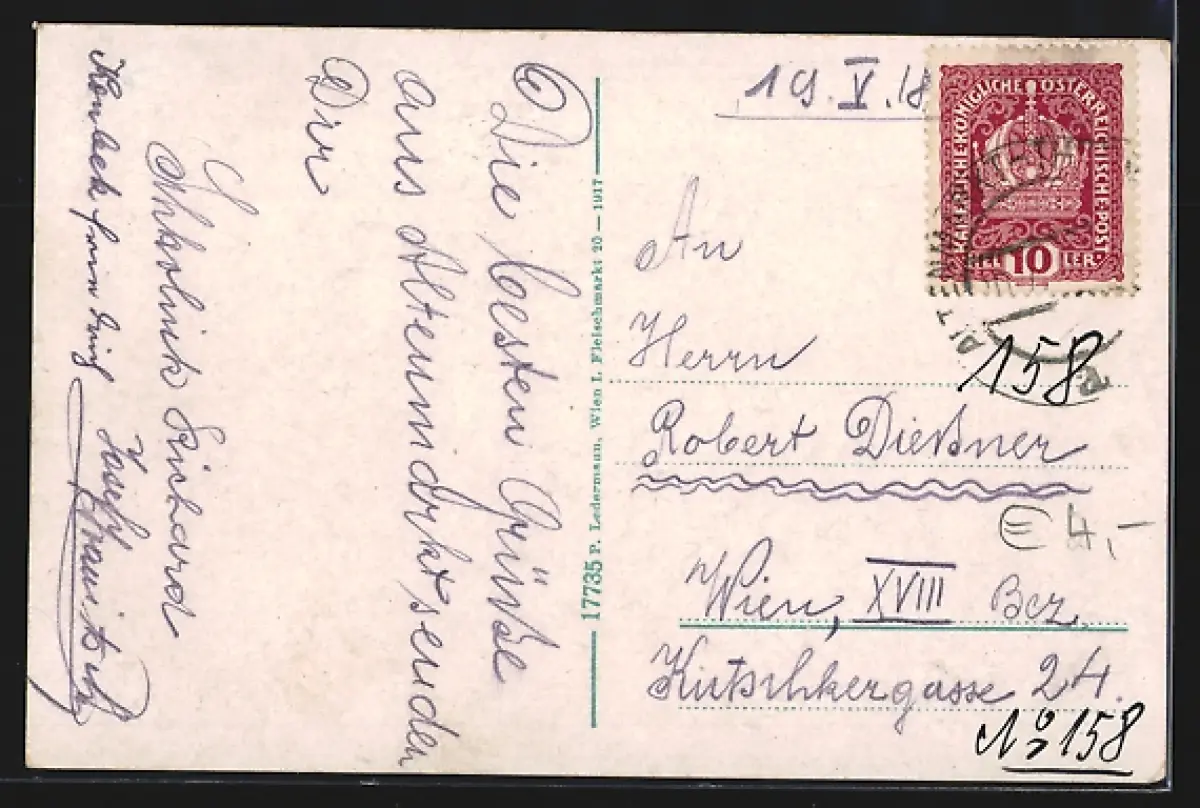 19. V. 18
KAISERLICHE·KÖNIGLICHE ÖSTERREICHISCHE·POST
10
158
An
Herrn
Robert Dießner
€ 4,-
Wien, XVIII Bez.
Kutschkergasse 24.
No 158
17735 P. Ledermann, Wien I, Fleischmarkt 20 — 1917
Die besten Grüße
aus Altenmarkt senden
Dir
Richard
Josef